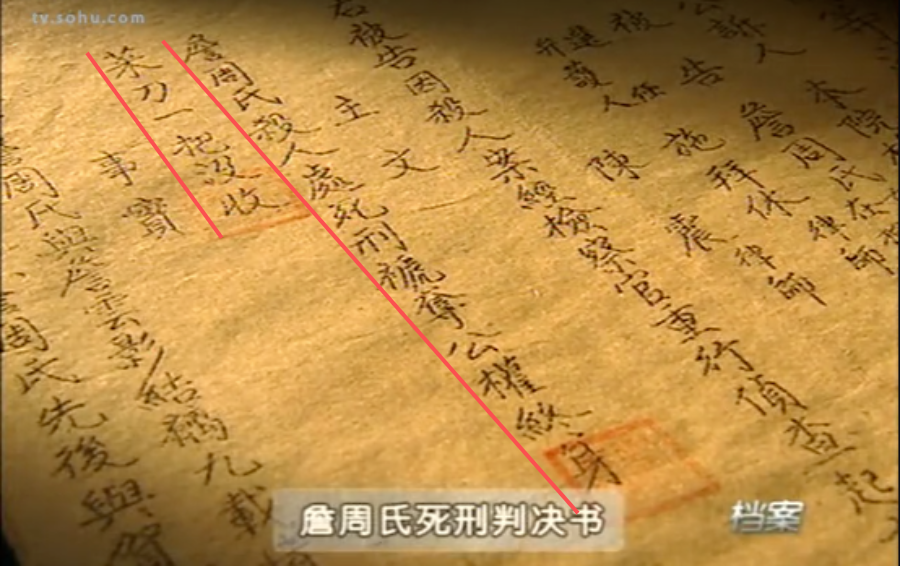 tv.sohu.com
公訴人 本院
被告 詹周氏在
選
護人 施拜休律師
陳震律師
右被告因殺人案經檢察官重行偵查起
主文
詹周氏殺人處死刑褫奪公權終身
菜刀一把沒收
事實
周氏與詹雲影結褵九載
周氏先後與賀
詹周氏死刑判决书
档案